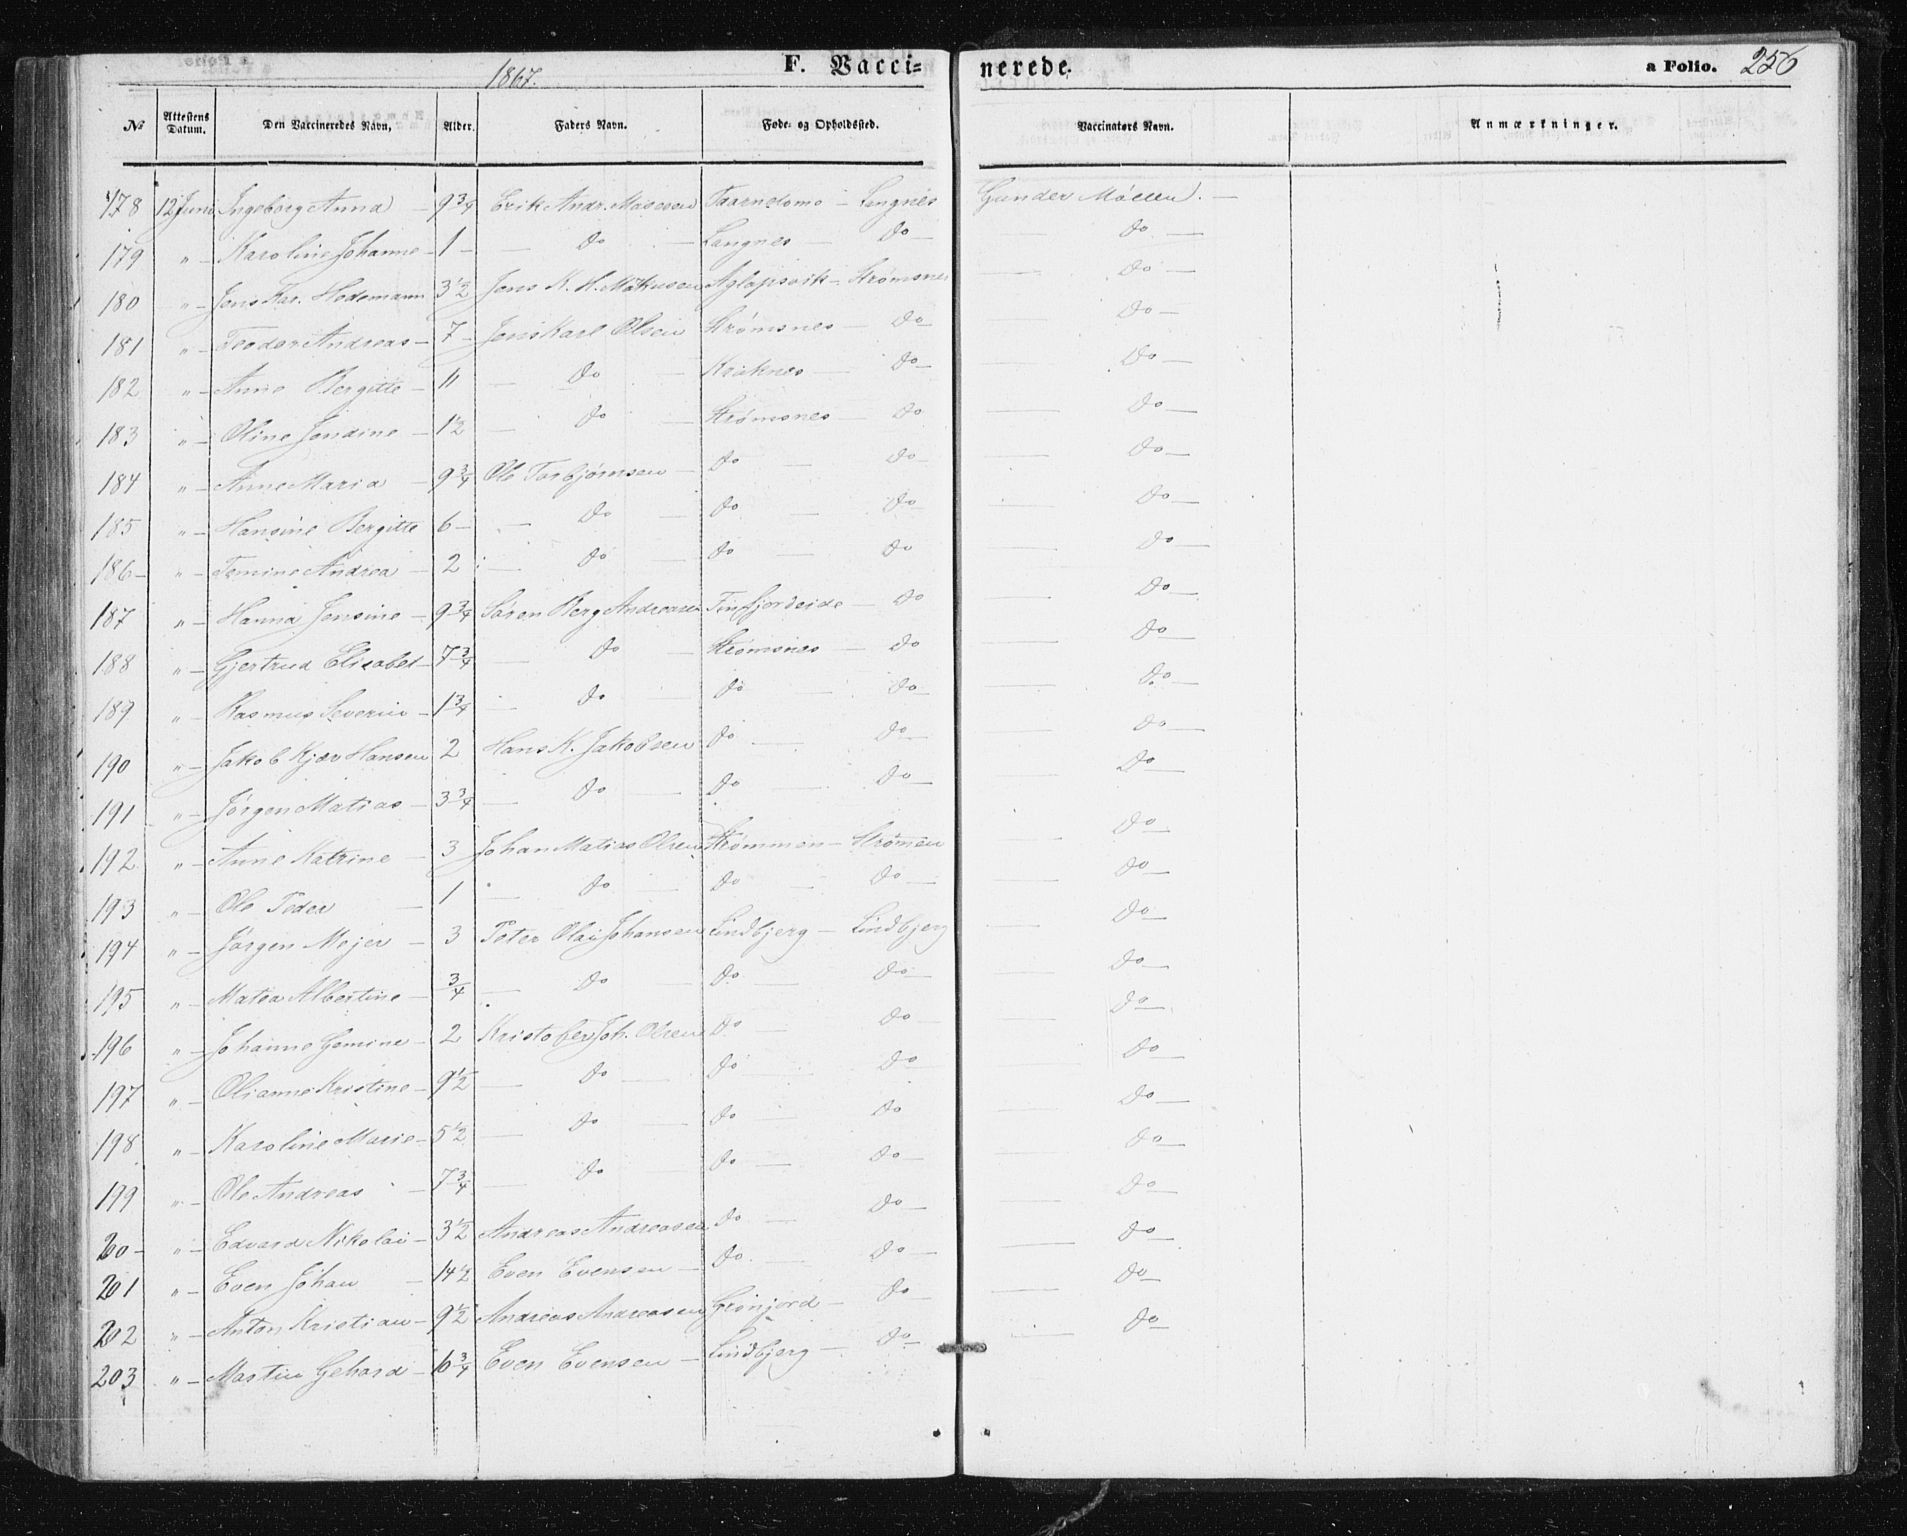 1867.
F. Vacci=
nerede.
a Folio. 256
No Attestens Datum. Den Vaccineredes Navn, Alder. Faders Navn. Føde- og Opholdssted. Vaccinators Navn. Anmærkninger.
178 12 Juni Ingeborg Anna 9 3/4 Erik Andr. Taarnelvmo - Lengnes Gunder
179 " - Karoline Johanne - 1 - Do - Langnes Do - Do -
180 " - Jens Kar. Hedemann 3 1/2 Jens K. H. Aglapsvik - Strømsnes Do -
181 " - Teodor Andreas - 7 - Jens Karl Olsen Strømsnes - Do Do -
182 " - Anne Bergitte - 11 - Do - Kraknes - Do - Do -
183 " - Oline Jendine - 1 1/2 - Do - Strømsnes - Do Do -
184 " - Anne Maria - 9 3/4 Ole Torbjørnsen - Do - Do - Do -
185 " - Hansine Bergitte 6 - - Do - Do - Do Do -
186 - " - Temine Andrea - 2 - Do - Do - Do Do -
187 " - Hanna Jensine - 9 3/4 Søren Berg Andreasen Finfjordeide - Do Do -
188 " - Gjertrud Elisabet - 7 3/4 - Do - Strømsnes - Do Do -
189 " - Rasmus Severin - 1 3/4 - Do - Do - Do - Do -
190 " - Jakob Kjær Hansen 2 Hans K. Jakobsen Do - Do - Do -
191 " - Jørgen Matias - 3 3/4 - Do - Do - Do - Do
192 " - Anne Katrine - 3 Johan Matias Olsen Strømmen - Strømen Do
193 " - Ole Peder - 1 - Do - Do - Do - Do -
194 " - Jørgen Mejer - 3 Peter Olai Johansen Lindbjerg - Lindbjerg Do -
195 " - Matea Albertine - 3/4 - Do - Do - Do - Do -
196 " - Johanne Gemine - 2 Kristofer Joh. Olsen Do - Do - Do -
197 " - Olianne Kristine - 9 1/2 - Do - Do - Do Do -
198 " - Karoline Marie - 5 1/2 - Do - Do - Do Do -
199 " - Ole Andreas - 7 3/4 - Do - Do - Do - Do -
20 - " - Edvard Nikolai - 3 1/2 Andreas Andreasen Do - Do Do -
201 " - Even Johan - 14 1/2 Even Evensen - Do - Do - Do -
202 " - Anton Kristian - 9 1/2 Andreas Andreasen Grønjord - Do - Do -
203 " - Martin Gehard - 6 3/4 Even Evensen - Lindbjerg - Do - Do